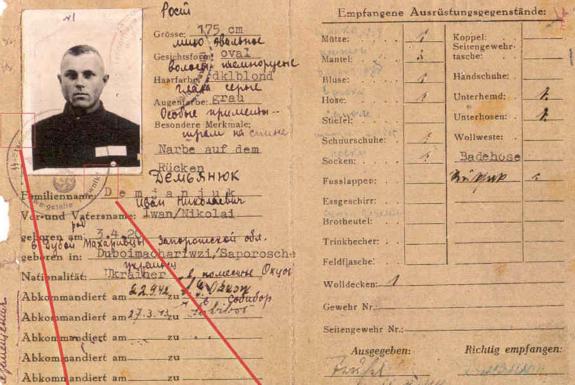 Рост
Grösse: 175 cm
лицо овальное
Gesichtsform: oval
волосы
Haarfarbe: dklblond
глаза серые
Augenfarbe: grau
Особые приметы
Besondere Merkmale:
шрам на спине
Narbe auf dem
Rücken
ДЕМЬЯНЮК
Familienname: Demjanjuk
Иван Николаевич
Vor- und Vatersname: Iwan/Nikolai
geboren am 3.4.20
Запорожской обл.
geboren in: Duboimachariwzi/Saporosche
украинец
Nationalität: Ukrainer
Abkommandiert am 22.9.42 zu
Собибор
Abkommandiert am 27.3.43 zu Sobibor
Abkommandiert am zu
Abkommandiert am zu
Abkommandiert am zu
Empfangene Ausrüstungsgegenstände:
Mütze: 1 Koppel:
Mantel: 1 Seitengewehr-
tasche:
Bluse: 1 Handschuhe:
Hose: 1 Unterhemd: 1
Stiefel: Unterhosen: 1
Schnürschuhe: 1 Wollweste:
Socken: 1 Badehose
Fusslappen:
Essgeschirr:
Brotbeutel:
Trinkbecher:
Feldflasche:
Wolldecken: 1
Gewehr Nr.:
Seitengewehr Nr.:
Ausgegeben: Richtig empfangen: